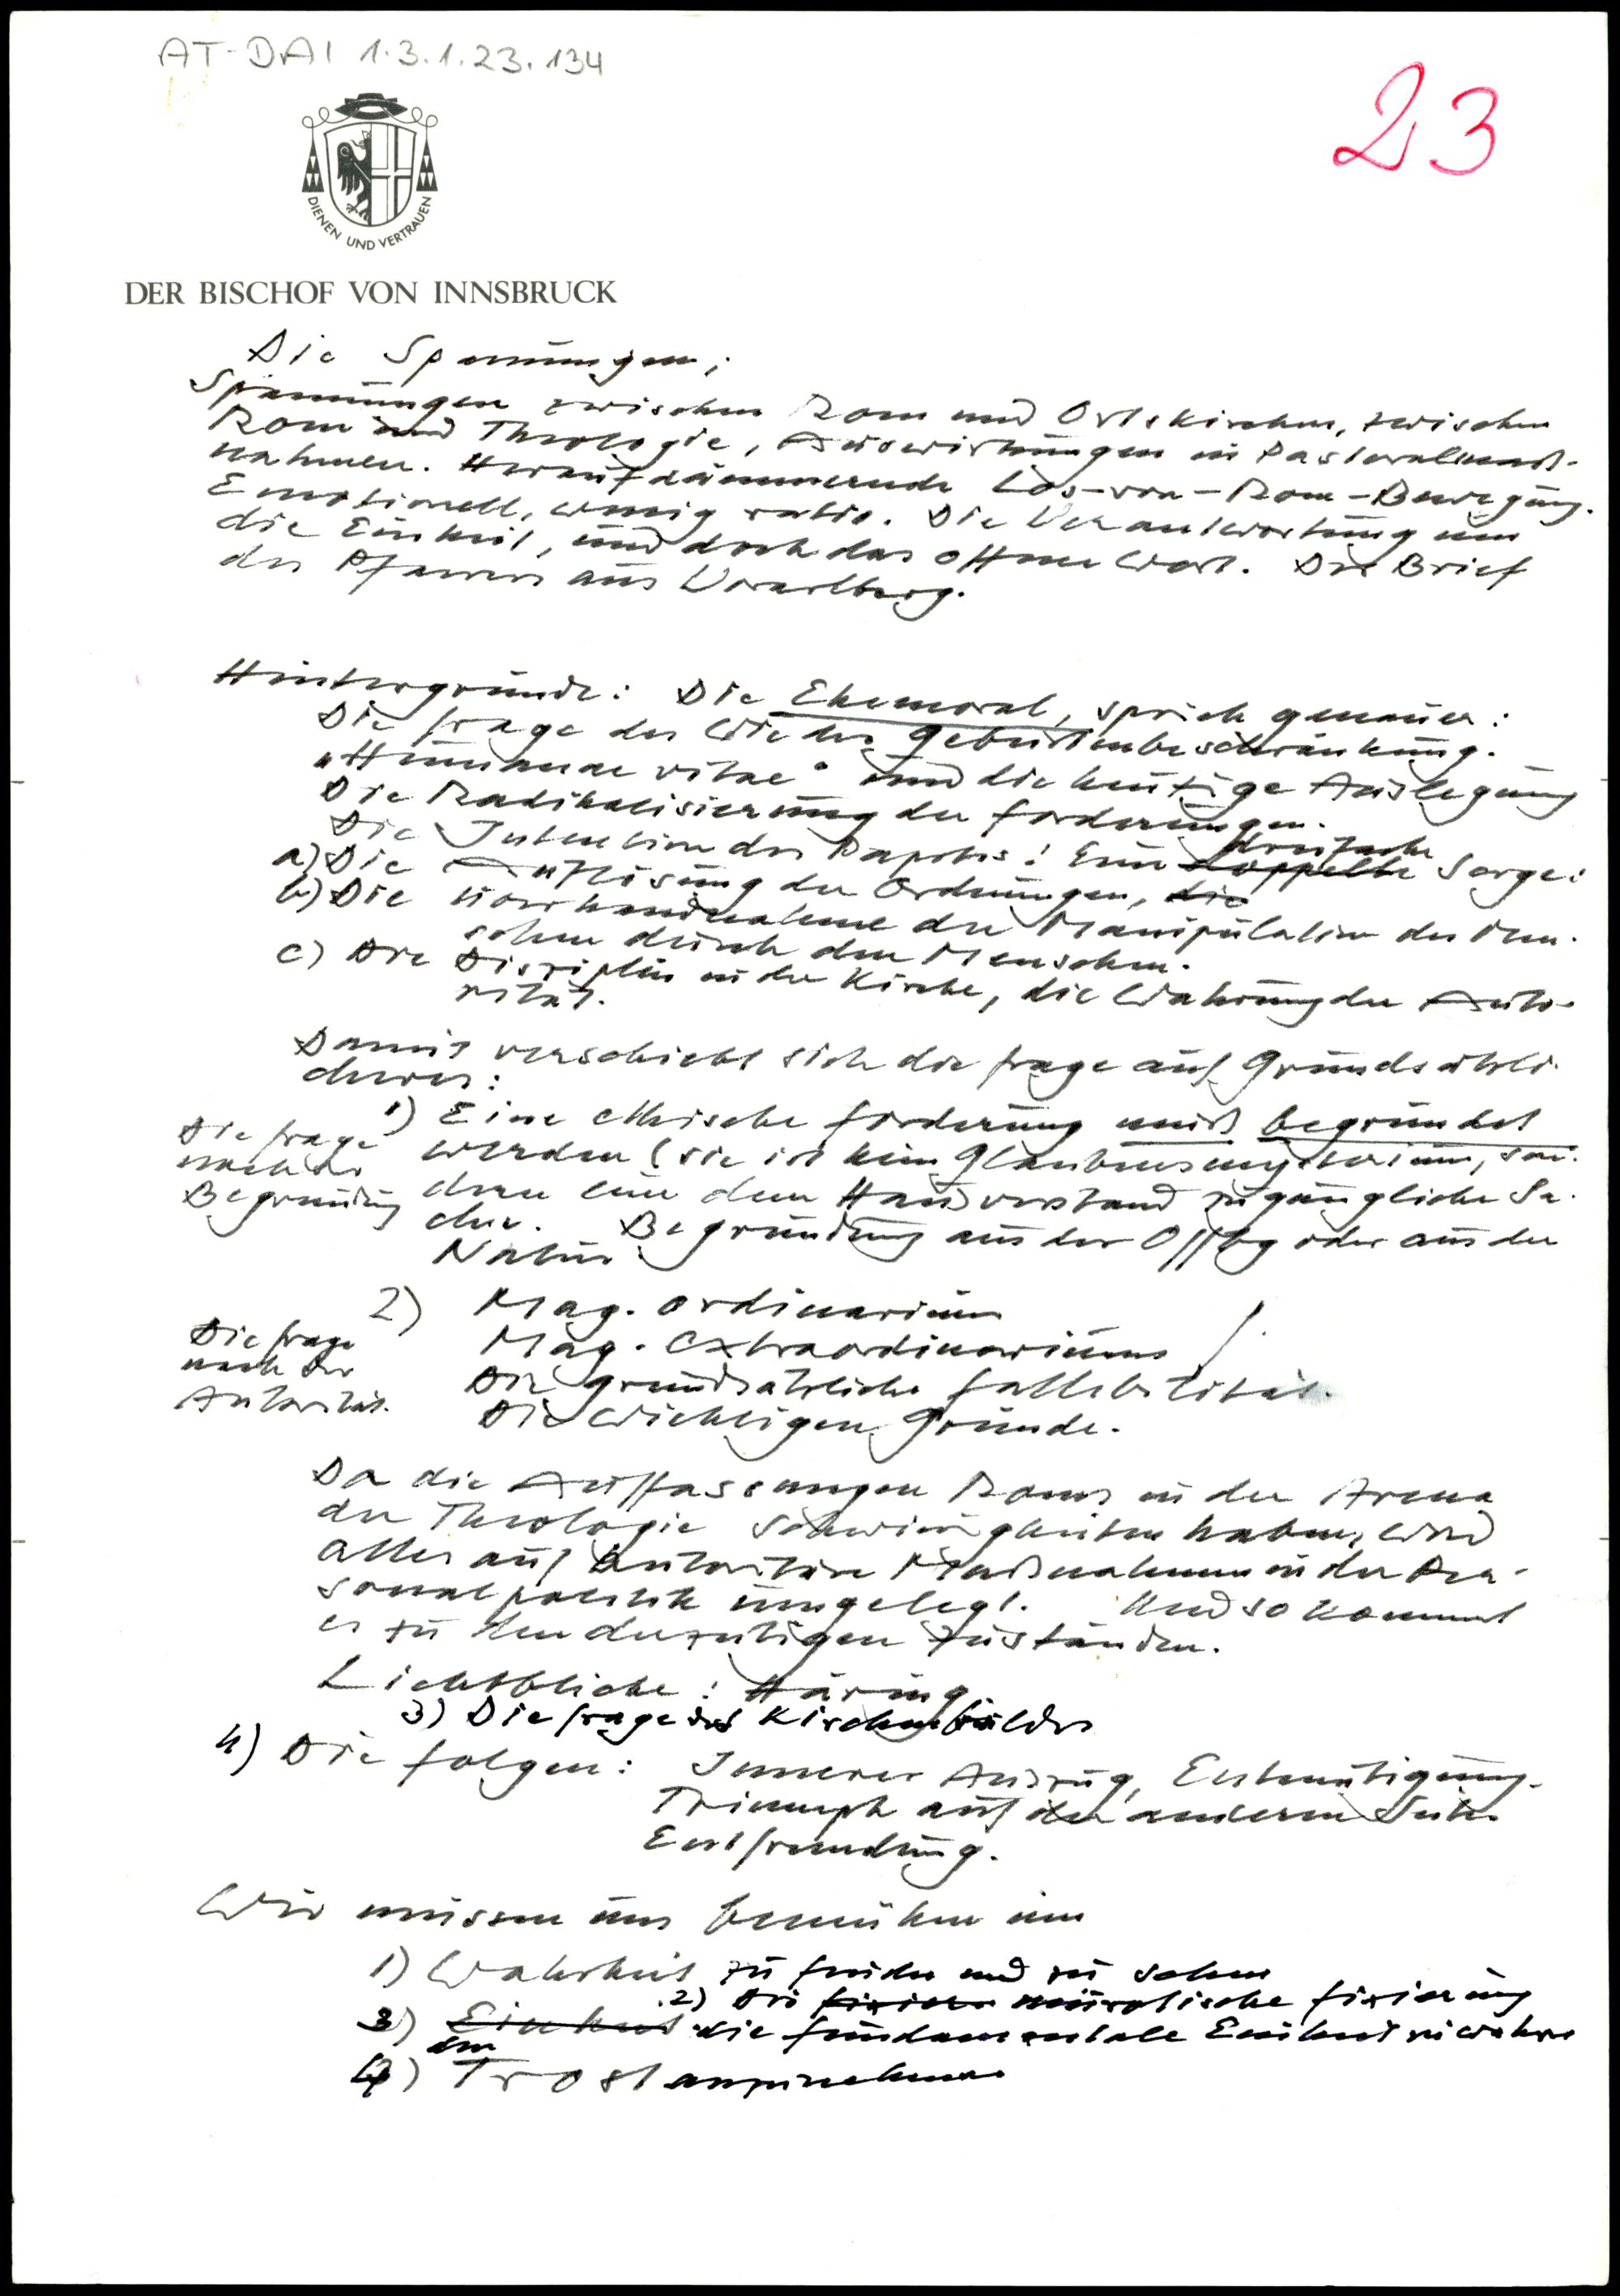 AT-DAI 1.3.1.23.134
23
DIENEN UND VERTRAUEN
DER BISCHOF VON INNSBRUCK
Die Spannungen;
Spannungen zwischen Rom und Ortskirchen, zwischen
Rom und Theologie, Auswirkungen in Pastoralmaß-
nahmen. Heraufdämmernde Los-von-Rom-Bewegung.
Emotionell, wenig ratio. Die Verantwortung um
die Einheit, und doch das offene Wort. Der Brief
des Pfarrers aus Vorarlberg.
Hintergründe: Die Ehemoral, sprich genauer:
Die Frage des Wie der Geburtenbeschränkung.
"Humanae vitae" und die heutige Auslegung
Die Radikalisierung der Forderungen.
Die Intention des Papstes: Eine doppelte dreifache Sorge:
a) Die Auflösung der Ordnungen, die
b) Die Überhandnahme der Manipulation des Men-
schen durch den Menschen.
c) Die Disziplin in der Kirche, die Wahrung der Auto-
rität.
Damit verschiebt sich die Frage auf Grundsätzli-
cheres:
Die Frage
nach der
Begründung
1) Eine ethische Forderung muß begründet
werden (sie ist kein Glaubensmysterium, son-
dern eine dem Hausverstand zugängliche Sa-
che. Begründung aus der Offbg oder aus der
Natur
Die Frage
nach der
Autorität.
2) Mag. ordinarium
Mag. extraordinarium !
Die grundsätzliche Fallibilität.
Die wichtigen Gründe.
Da die Auffassungen Roms in der Arena
der Theologie Schwierigkeiten haben, wird
alles auf autoritäre Maßnahmen in der Per-
sonalpolitik umgelegt. Und so kommt
es zu den derzeitigen Zuständen.
Lichtblicke: Häring
3) Die Frage des Kirchenbildes
4) Die Folgen: Innerer Auszug, Entmutigung.
Triumph auf der anderen Seite.
Entfremdung.
Wir müssen uns bemühen um
1) Wahrheit zu finden und zu sehen
2) Die neurotische Fixierung
3) Einheit die fundamentale Einheit zu wahren
4) den Trost anzunehmen